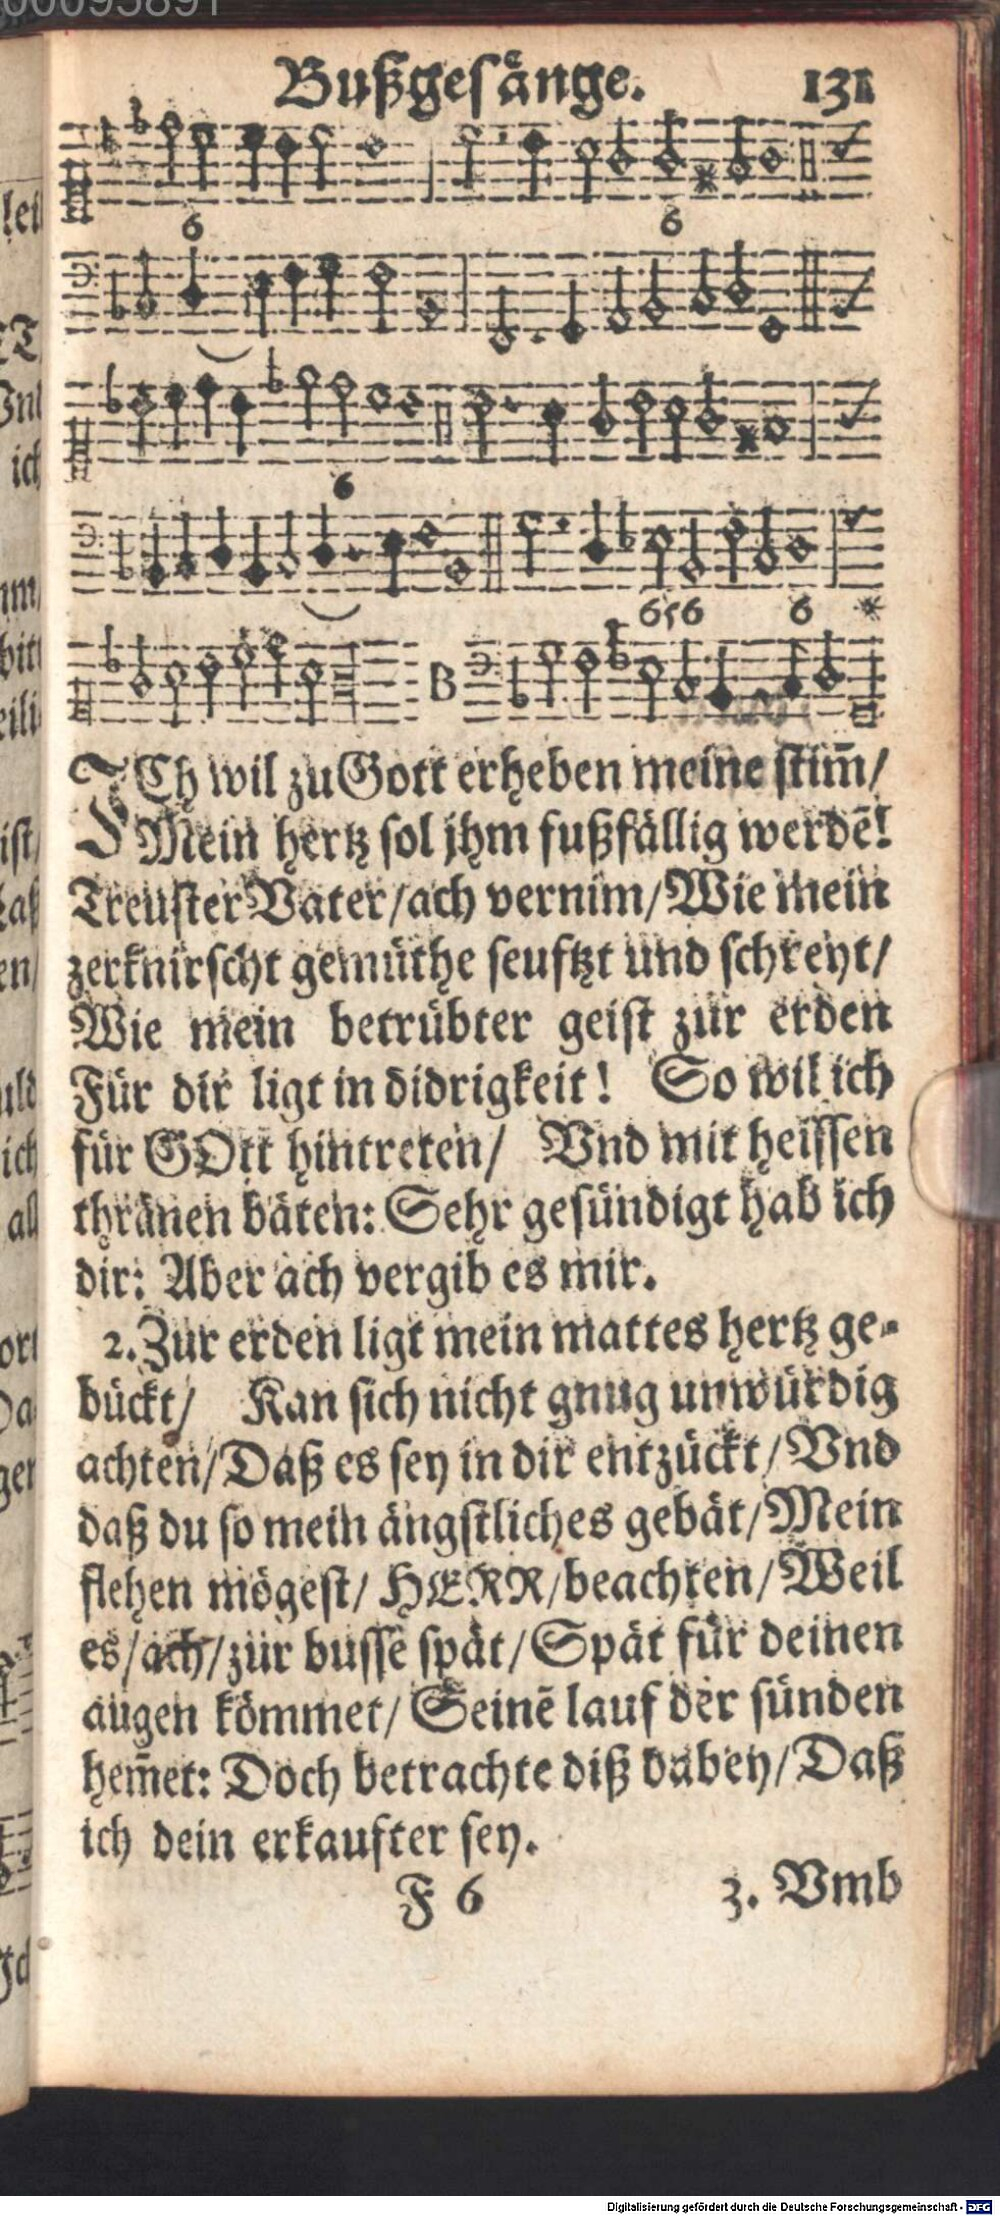 Bußgesänge. 131
6 6
6
656 6 *
B
ICh wil zu Gott erheben meine stim̃/
Mein hertz sol jhm fußfällig werdẽ!
Treuster Vater/ach vernim/Wie mein
zerknirscht gemüthe seuftzt und schreyt/
Wie mein betrübter geist zur erden
Für dir ligt in didrigkeit! So wil ich
für GOtt hintreten/ Vnd mit heissen
thränen bäten: Sehr gesündigt hab ich
dir: Aber ach vergib es mir.
2. Zur erden ligt mein mattes hertz ge-
bückt/ Kan sich nicht gnug unwürdig
achten/Daß es sey in dir entzückt/Vnd
daß du so mein ängstliches gebät/Mein
flehen mögest/ HERR/beachten/Weil
es/ach/zur busse spät/Spät für deinen
augen kömmet/ Seinẽ lauf der sünden
hem̃et: Doch betrachte diß dabey/Daß
ich dein erkaufter sey.
F 6 3. Vmb
Digitalisierung gefördert durch die Deutsche Forschungsgemeinschaft - DFG